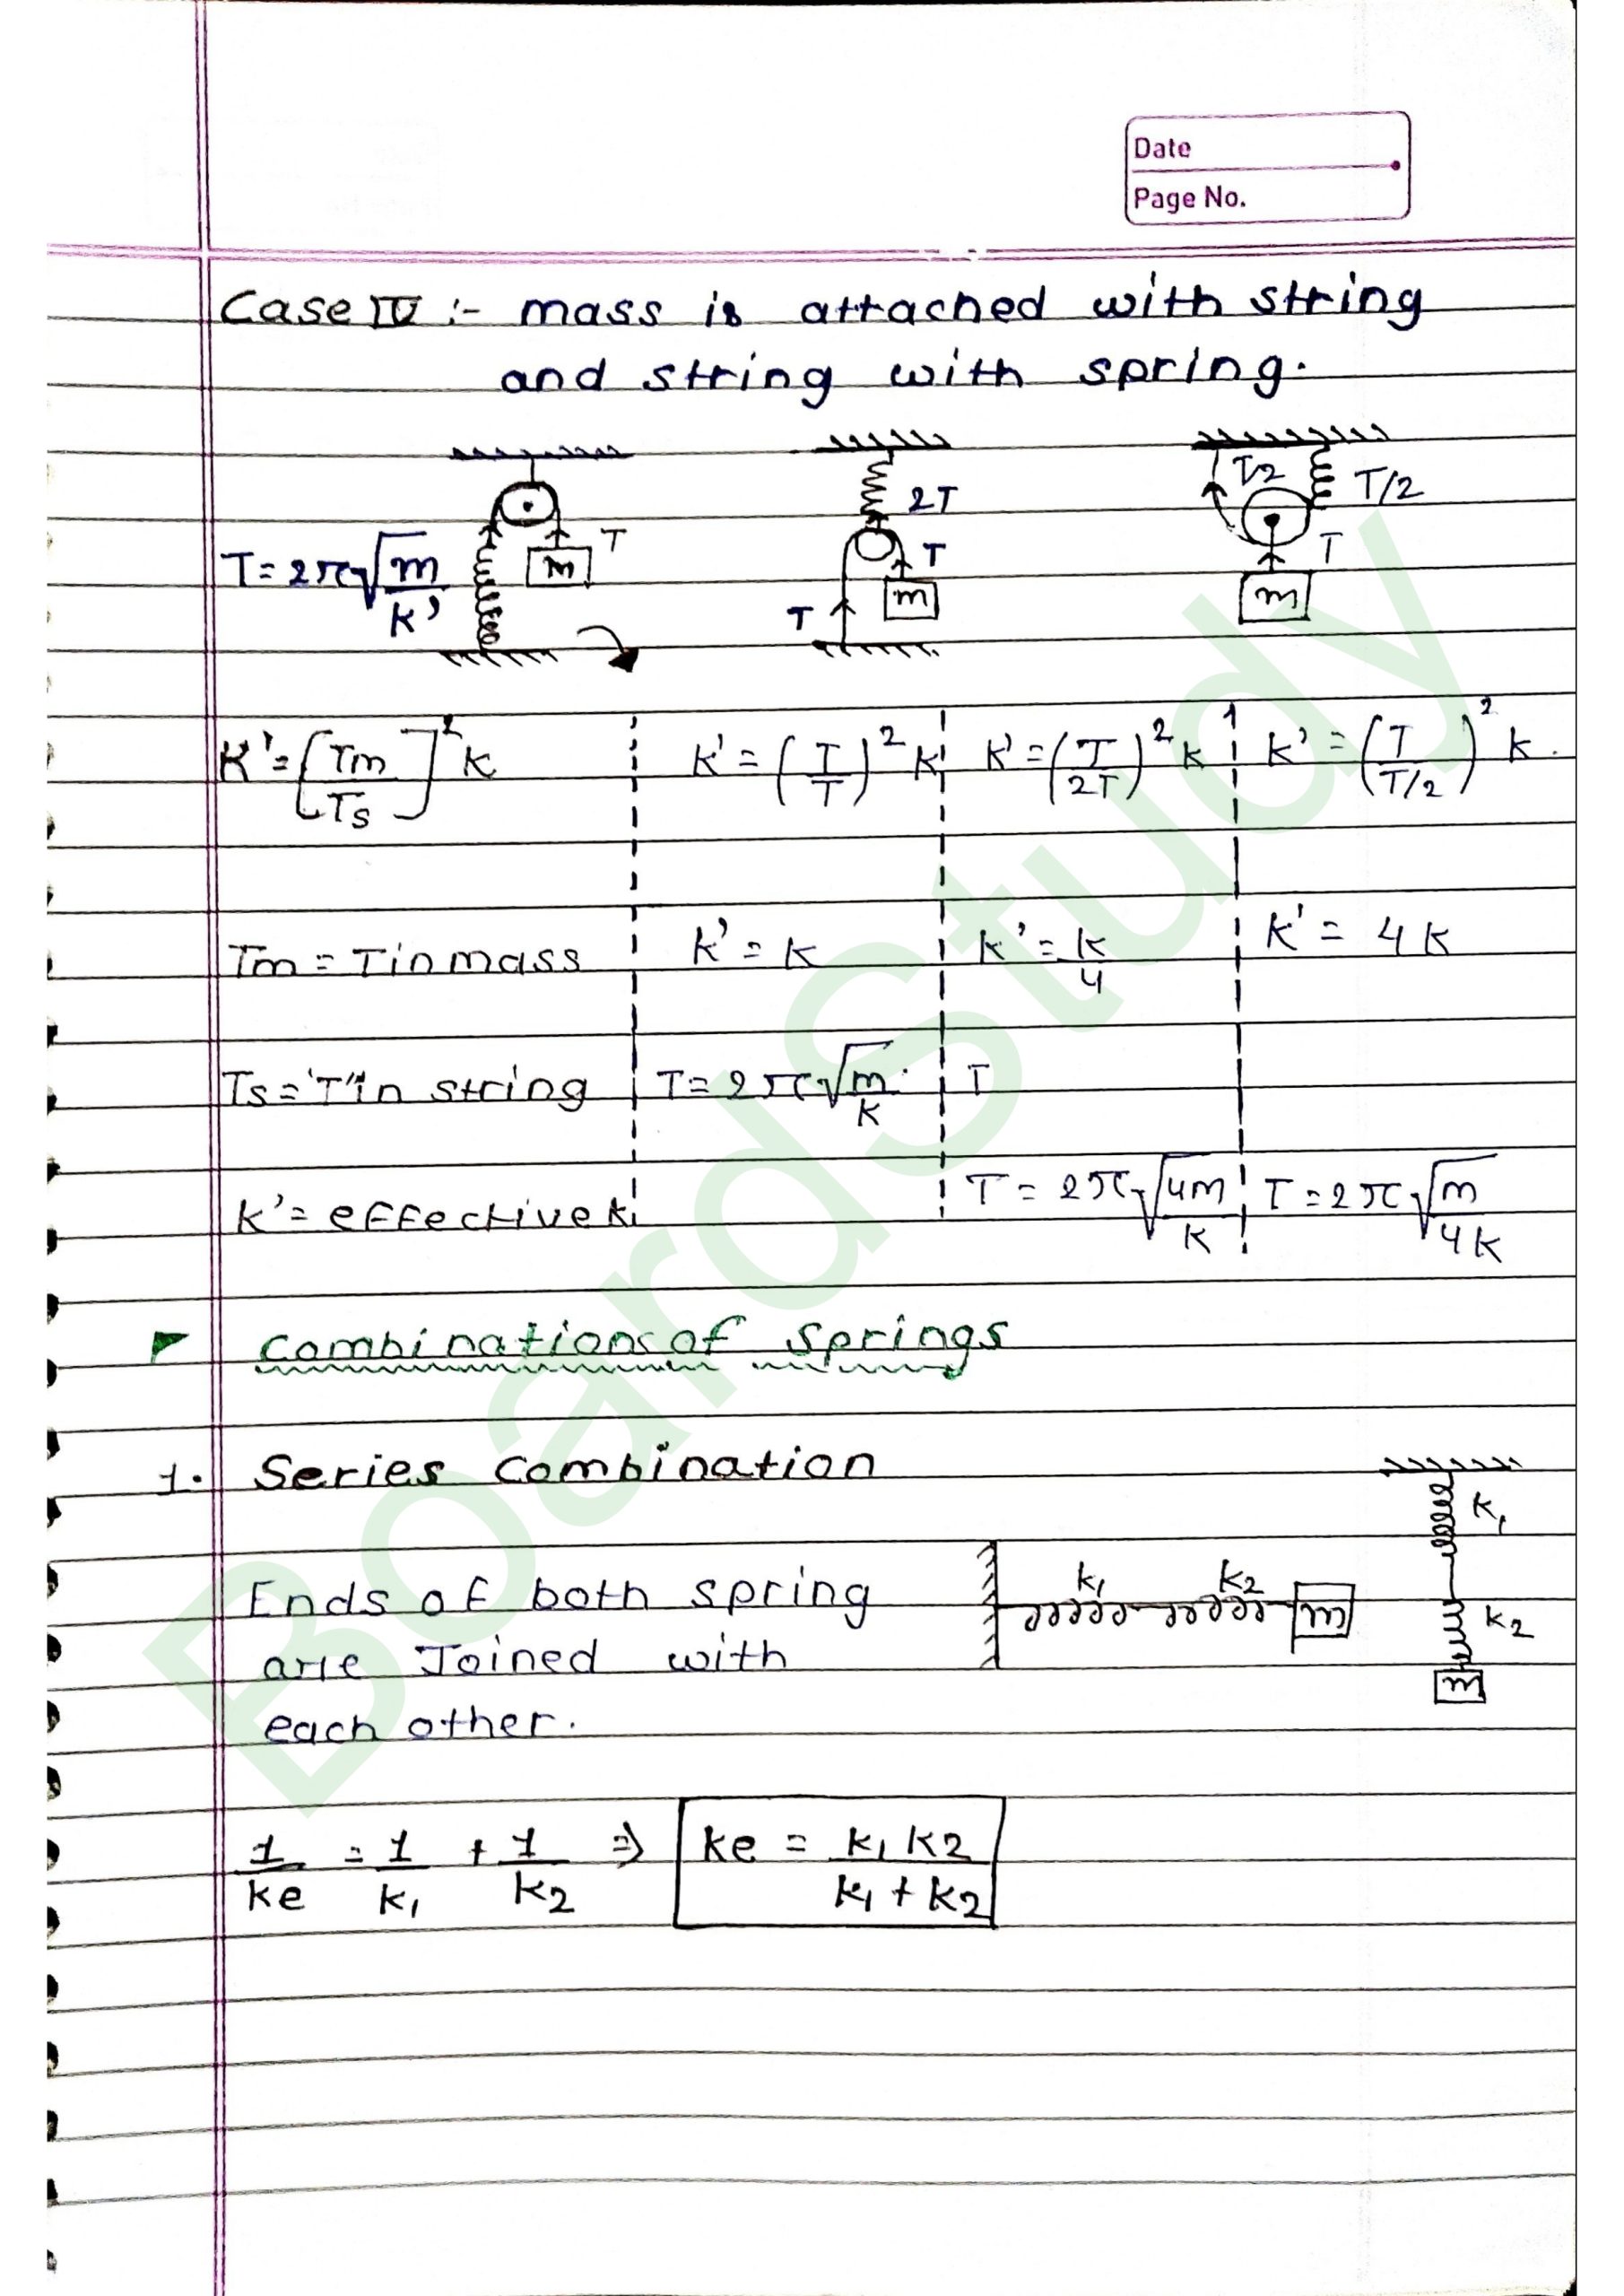 Date
Page No.
Case IV :- mass is attached with string
and string with spring.
T = 2π√m/k'
T
m
2T
T
T
m
T/2
T/2
T
m
K' = [Tm/Ts]² k
k' = (T/T)² k
k' = (T/2T)² k
k' = (T/T/2)² k.
Tm = T in mass
k' = k
k' = k/4
k' = 4k
Ts = "T" in string
T = 2π√m/k
T
k' = effective k
T = 2π√4m/k
T = 2π√m/4k
Combinations of springs
1. Series Combination
k₁
k₂
m
k₁
k₂
m
Ends of both spring
are Joined with
each other.
1/ke = 1/k₁ + 1/k₂ ⇒ ke = k₁ k2/k₁ + k2
BoardStudy